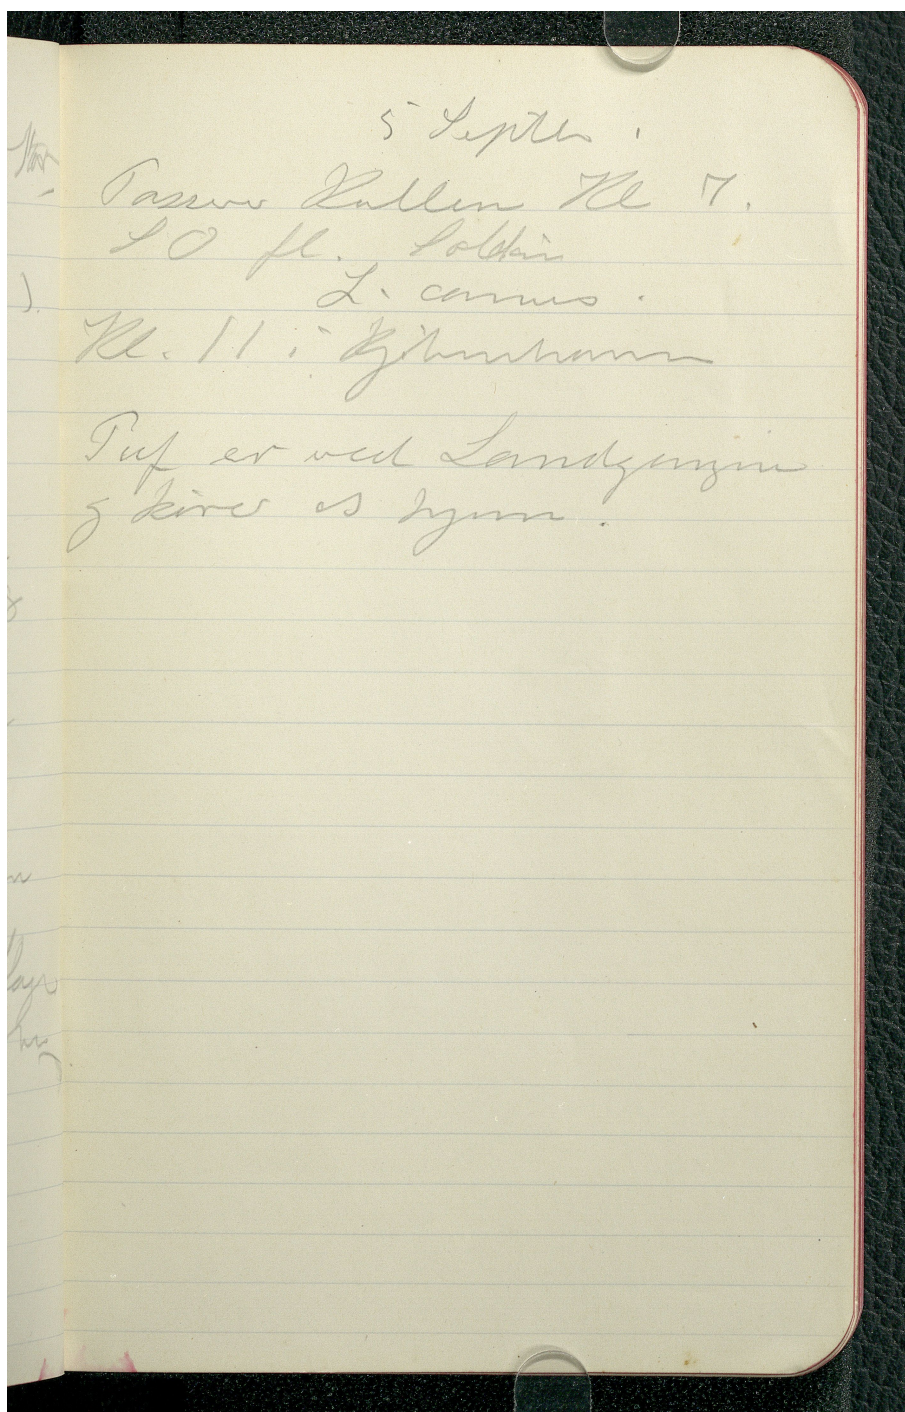 5 Septbr.
Passerer Kullen Kl 7.
S O fl. Solskin
L. canus.
Kl. 11 i Kjöbenhavn
Tuf er ved Landgangen
og kører os hjem.